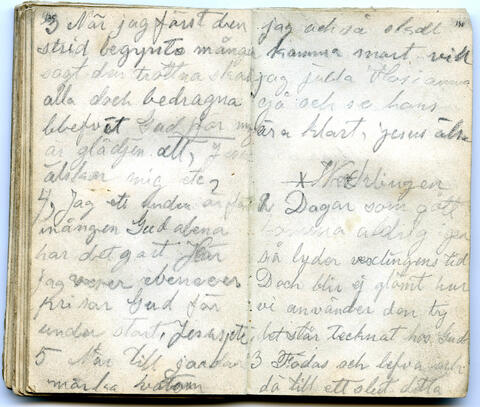 3 När jag först den
strid begynte många
sagt den trötna skall
alla doch bedragna
blefvet Gud for mig
är glädjen att, Jesu
älskar mig etc
4, Jag ett under är för
mången Gud alena
har det gått Har
jag ebenever
krisar Gud får
under stort, Jesus
5 När till
märka
jag och så skall
komma snart vill
jag jubla Hosianna
och se hans
ära klart, jesus älska
x Wäxlingen
2 Dagar som gått
komma aldrig igen
Så lyder vexlingens tid
Doch blir ej glömt hur
vi använder den ty
det står tecknat hos Gud
3 Födas och lefva och
dö till ett slut detta